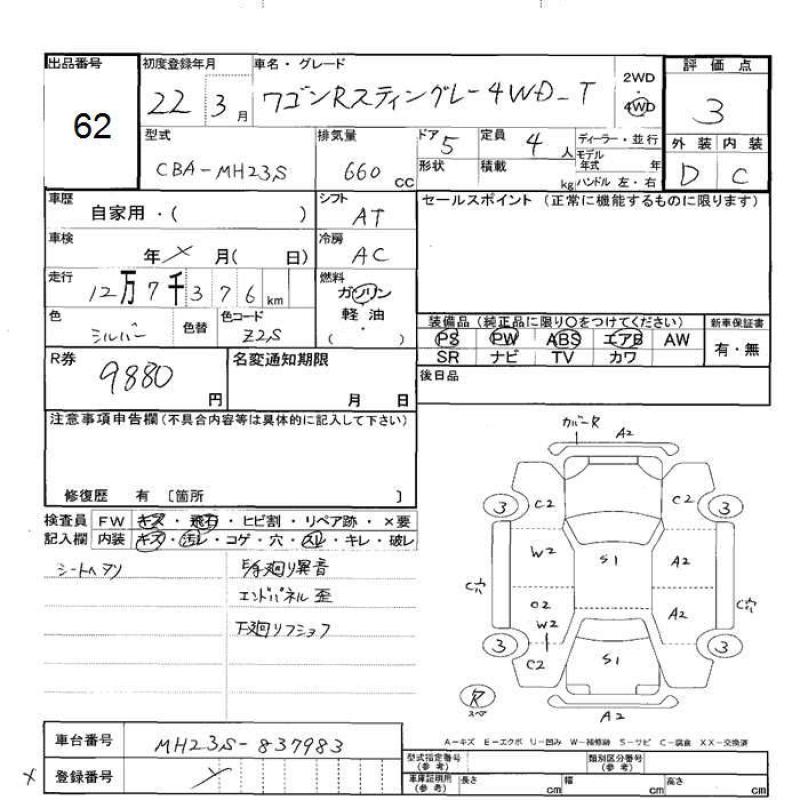 出品番号 初度登録年月 車名・グレード 評価点
62 22 3月 ワゴンRスティングレー4WD-T 2WD・4WD 3
型式 排気量 ドア 5 定員 4人 ディーラー・並行 外装 内装
CBA-MH23S 660cc 形状 積載 kg モデル年式 年 ハンドル 左・右 D C
車歴 自家用・( ) シフト AT セールスポイント (正常に機能するものに限ります)
車検 年 × 月( 日) 冷房 AC
走行 12万7千376km 燃料 ガソリン
色 シルバー 色替 色コード Z2S 軽・油 ( )
装備品(純正品に限り○をつけてください) 新車保証書
PS PW ABS エアB AW 有・無
SR ナビ TV カワ
R券 9880円 名変通知期限 月 日 後日品
注意事項申告欄(不具合内容等は具体的に記入して下さい)
修復歴 有 〔箇所 〕
検査員 FW キズ・飛石・ヒビ割・リペア跡・×要
記入欄 内装 キズ・汚レ・コゲ・穴・スレ・キレ・破レ
シートヘタリ
廻り異音
エンドパネル歪
下廻り
カバーR A2
C2 C2
3 3
W2 S1 A2
C穴 C2 A2 C穴
W2
3 3
C2 S1
R
スペア
A2
A-キズ E-エクボ U-凹み W-補修跡 S-サビ C-腐食 XX-交換済
車台番号 MH23S-837983
× 登録番号 ×
型式指定番号(参考) 類別区分番号(参考)
車庫証明用(参考) 長さ cm 幅 cm 高さ cm